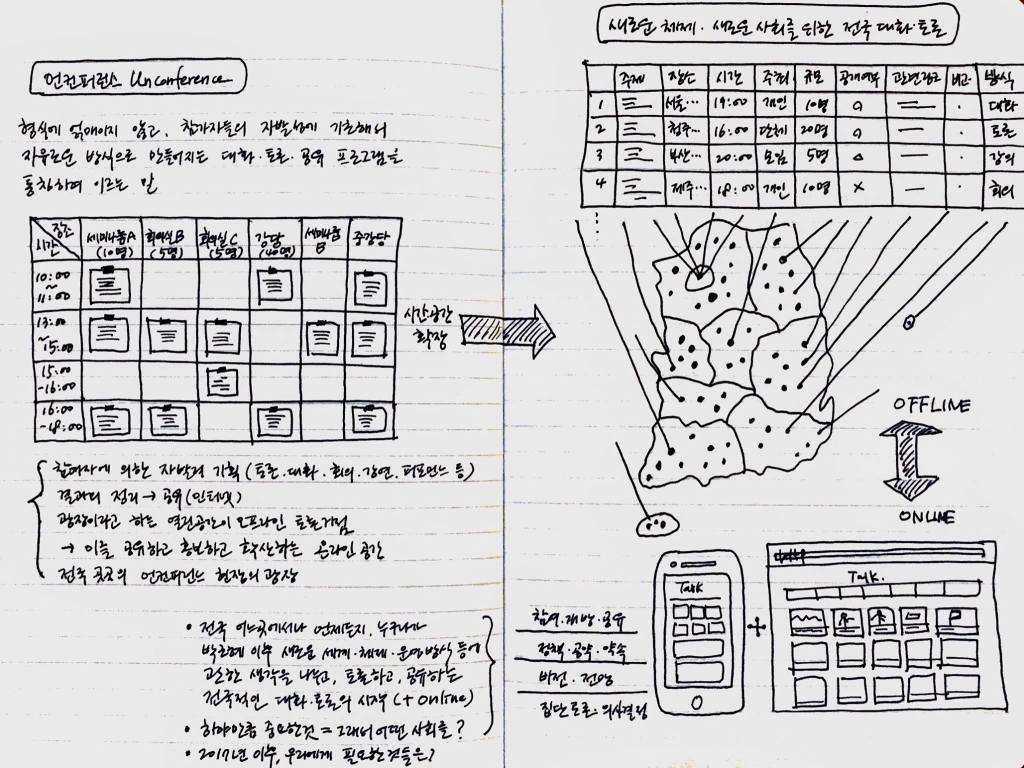 언컨퍼런스 Unconference
형식에 얽매이지 않고, 참가자들의 자발성에 기초해서
자유로운 방식으로 만들어지는 대화·토론·공유 프로그램을
통칭하여 이르는 말
장소
시간
세미나룸A (10명)
회의실B (5명)
회의실C (5명)
강당 (40명)
세미나룸B
중강당
10:00 ~ 11:00
13:00 ~ 15:00
15:00 -16:00
16:00 -18:00
시간·공간
확장
참여자에 의한 자발적 기획 (토론·대화·회의·강연·퍼포먼스 등)
결과의 정리 → 공유(인터넷)
광장이라고 하는 열린공간이 오프라인 토론거점
→ 이를 공유하고 홍보하고 확산하는 온라인 공간
전국 곳곳의 언컨퍼런스 현장의 광장
• 전국 어느곳에서나 언제든지, 누구나가
박근혜 이후 새로운 세계·체제·운영방식 등에
관한 생각을 나누고, 토론하고, 공유하는
전국적인 대화·토론의 시작 (+ Online)
• 하야만큼 중요한것 = 그래서 어떤 사회를?
• 2017년 이후, 우리에게 필요한것들은?
새로운 체제·새로운 사회를 위한 전국 대화·토론
주제 장소 시간 주최 규모 공개여부 관련링크 비고 방식
1 서울… 19:00 개인 10명 ○ 대화
2 청주… 16:00 단체 20명 ○ 토론
3 부산… 20:00 모임 5명 △ 강의
4 제주… 18:00 개인 10명 × 회의
OFFLINE
ONLINE
참여·제안·공유
정책·공약·약속
비전·전망
집단토론·의사결정
Talk
+
Talk.